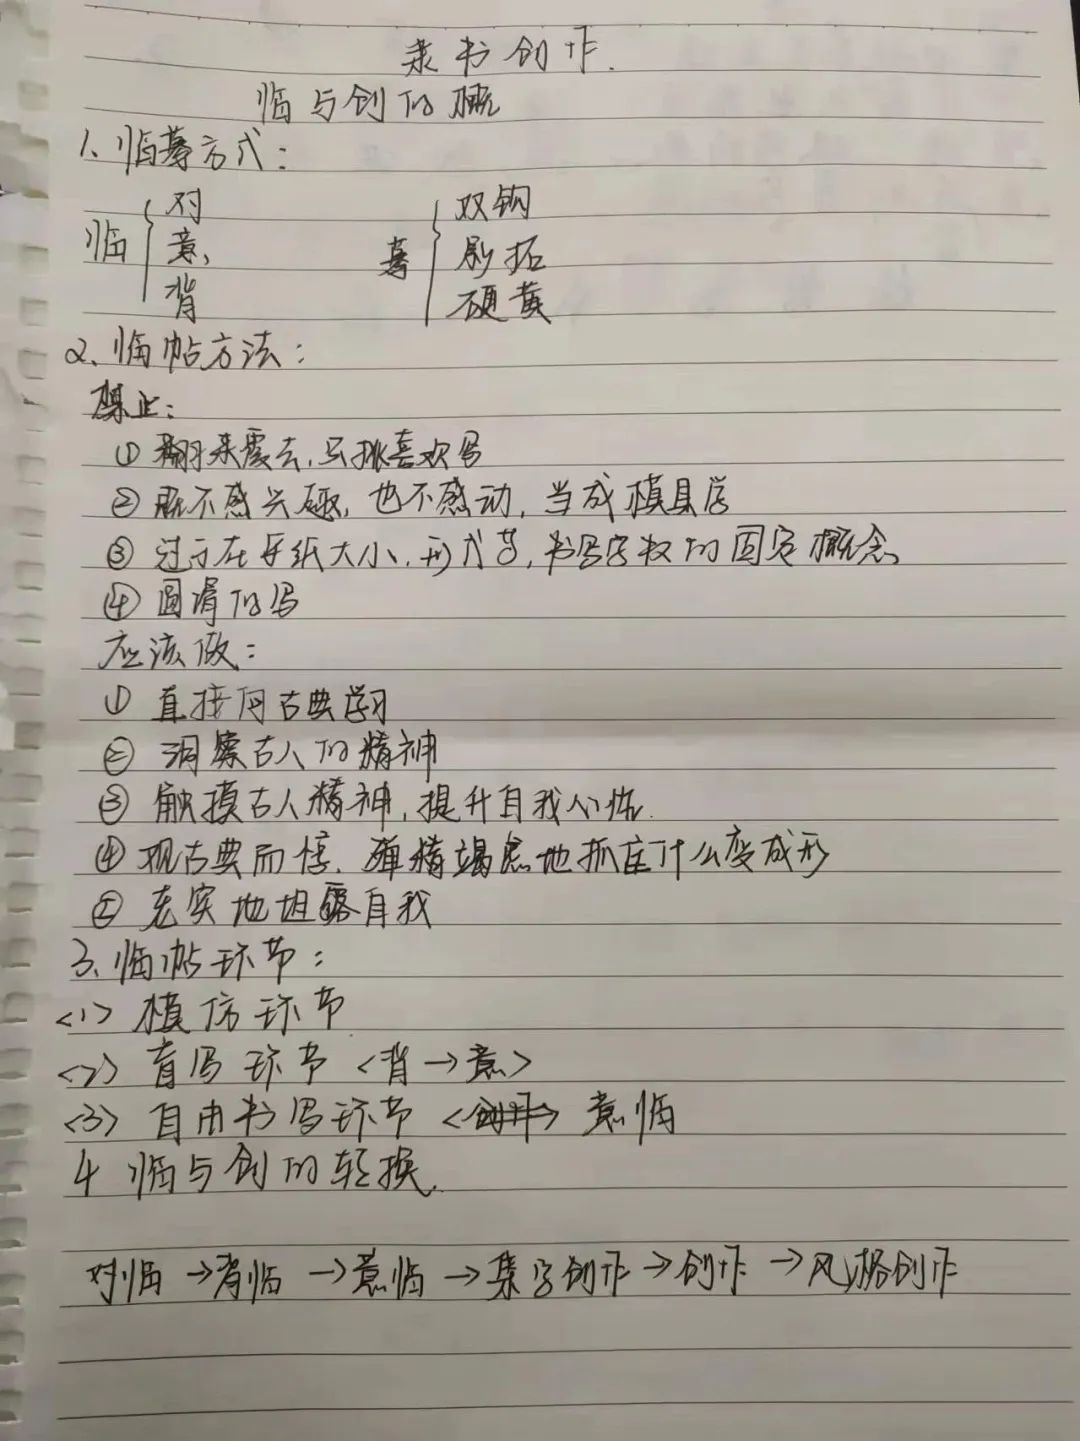 隶书创作.
临与创的概
1、临摹方式：
临{对 意、背 摹{双钩 影拓 硬黄
2、临帖方法：
禁止：
① 翻来覆去,只挑喜欢写
② 既不感兴趣,也不感动,当成模具学
③ 过于在乎纸大小,形式等,书写字数的固定概念
④ 圆滑的写
应该做：
① 直接用古典学习
② 洞察古人的精神
③ 触摸古人精神,提升自我人格.
④ 观古典而悟.殚精竭虑地抓住什么变成形
⑤ 充实地坦露自我
3、临帖环节：
<1> 模仿环节
<2> 盲写环节 <背→意>
<3> 自由书写环节 <创作> 意临
4 临与创的转换.
对临→背临→意临→集字创作→创作→风格创作